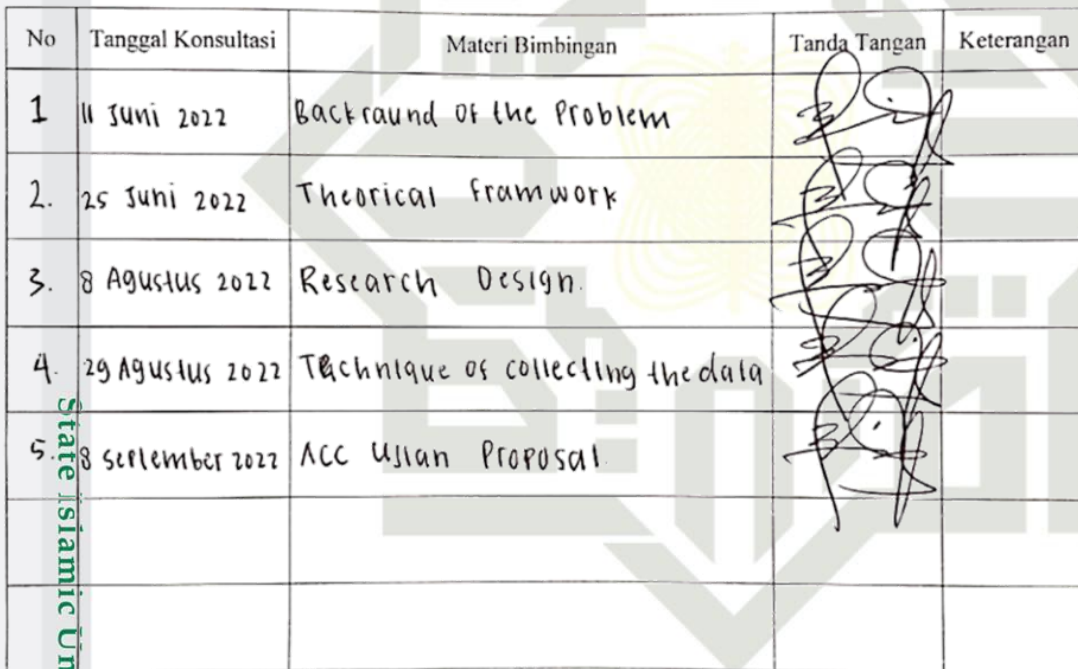 No Tanggal Konsultasi Materi Bimbingan Tanda Tangan Keterangan
1 11 Juni 2022 Backraund of the Problem
2. 25 Juni 2022 Theorical framwork
3. 8 Agustus 2022 Research Design.
4. 29 Agustus 2022 Technique of collecting the data
5. 8 September 2022 ACC Ujian Proposal.
State Islamic Un